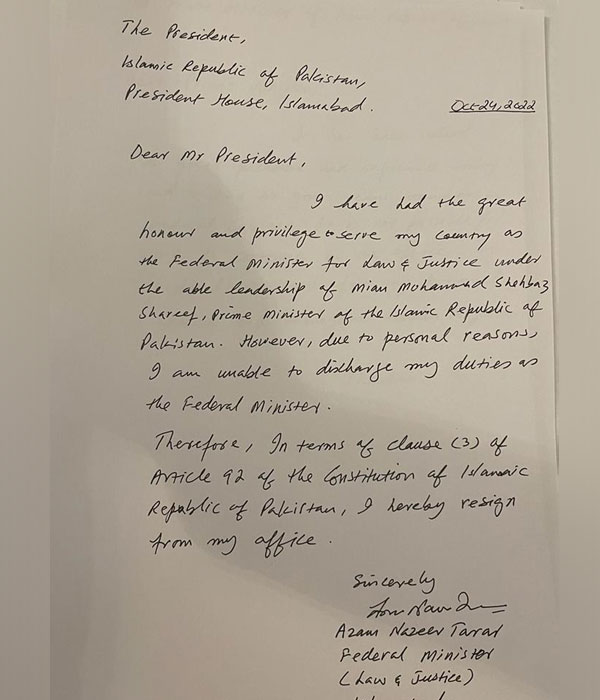 The President,
Islamic Republic of Pakistan,
President House, Islamabad.
Oct 24, 2022
Dear Mr President,
I have had the great
honour and privilege to serve my country as
the Federal Minister for Law & Justice under
the able leadership of Mian Mohammad Shehbaz
Shareef, Prime Minister of the Islamic Republic of
Pakistan. However, due to personal reasons,
I am unable to discharge my duties as
the Federal Minister.
Therefore, In terms of clause (3) of
Article 92 of the Constitution of Islamic
Republic of Pakistan, I hereby resign
from my office.
Sincerely
Azam Nazeer Tarar
Federal Minister
(Law & Justice)